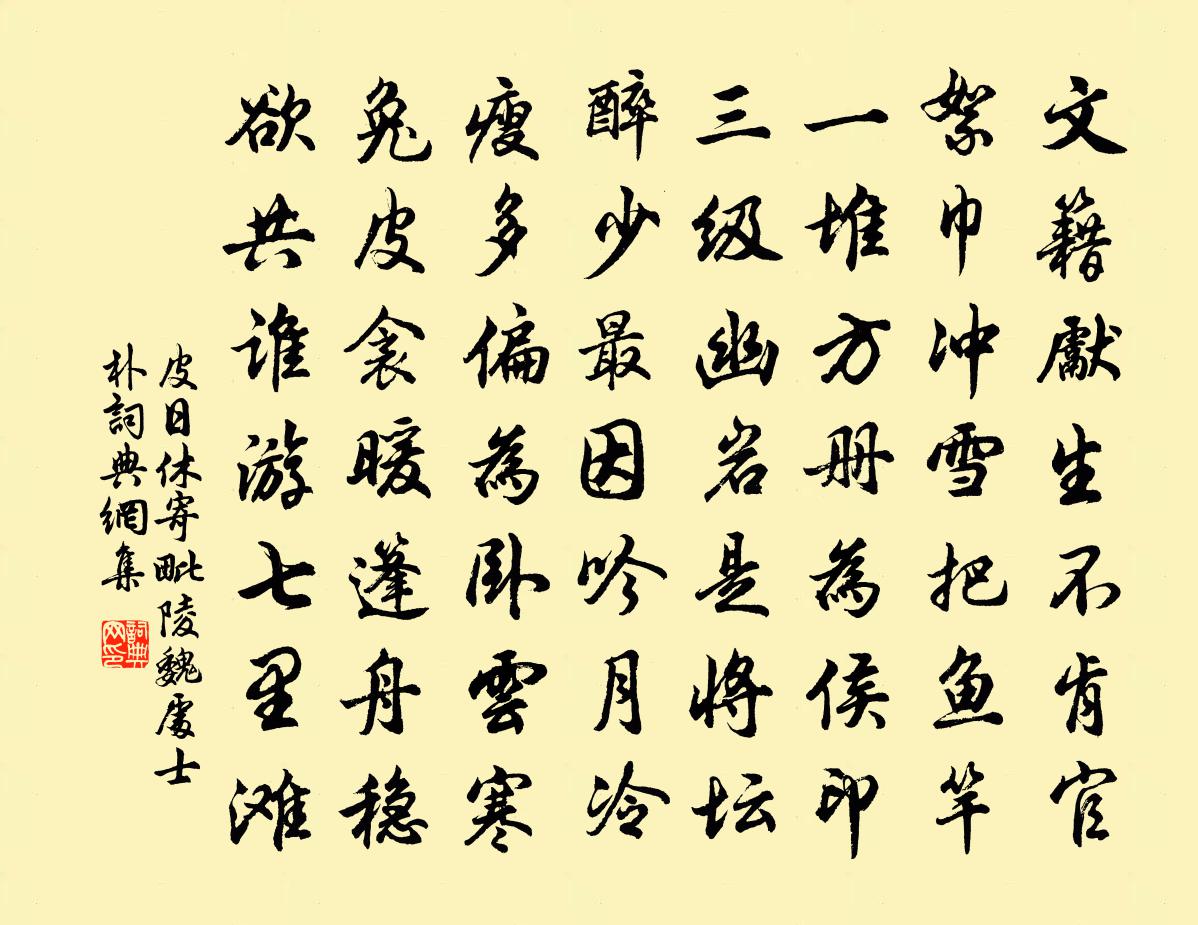 文籍獻生不肯官
絮巾冲雪把魚竿
一堆方册為侯印
三级幽岩是将坛
醉少最因吟月冷
瘦多偏為卧雲寒
兔皮衾暖篷舟稳
欲共谁游七里滩
皮日休寄毗陵魏處士
朴詞典網集
詞典网印